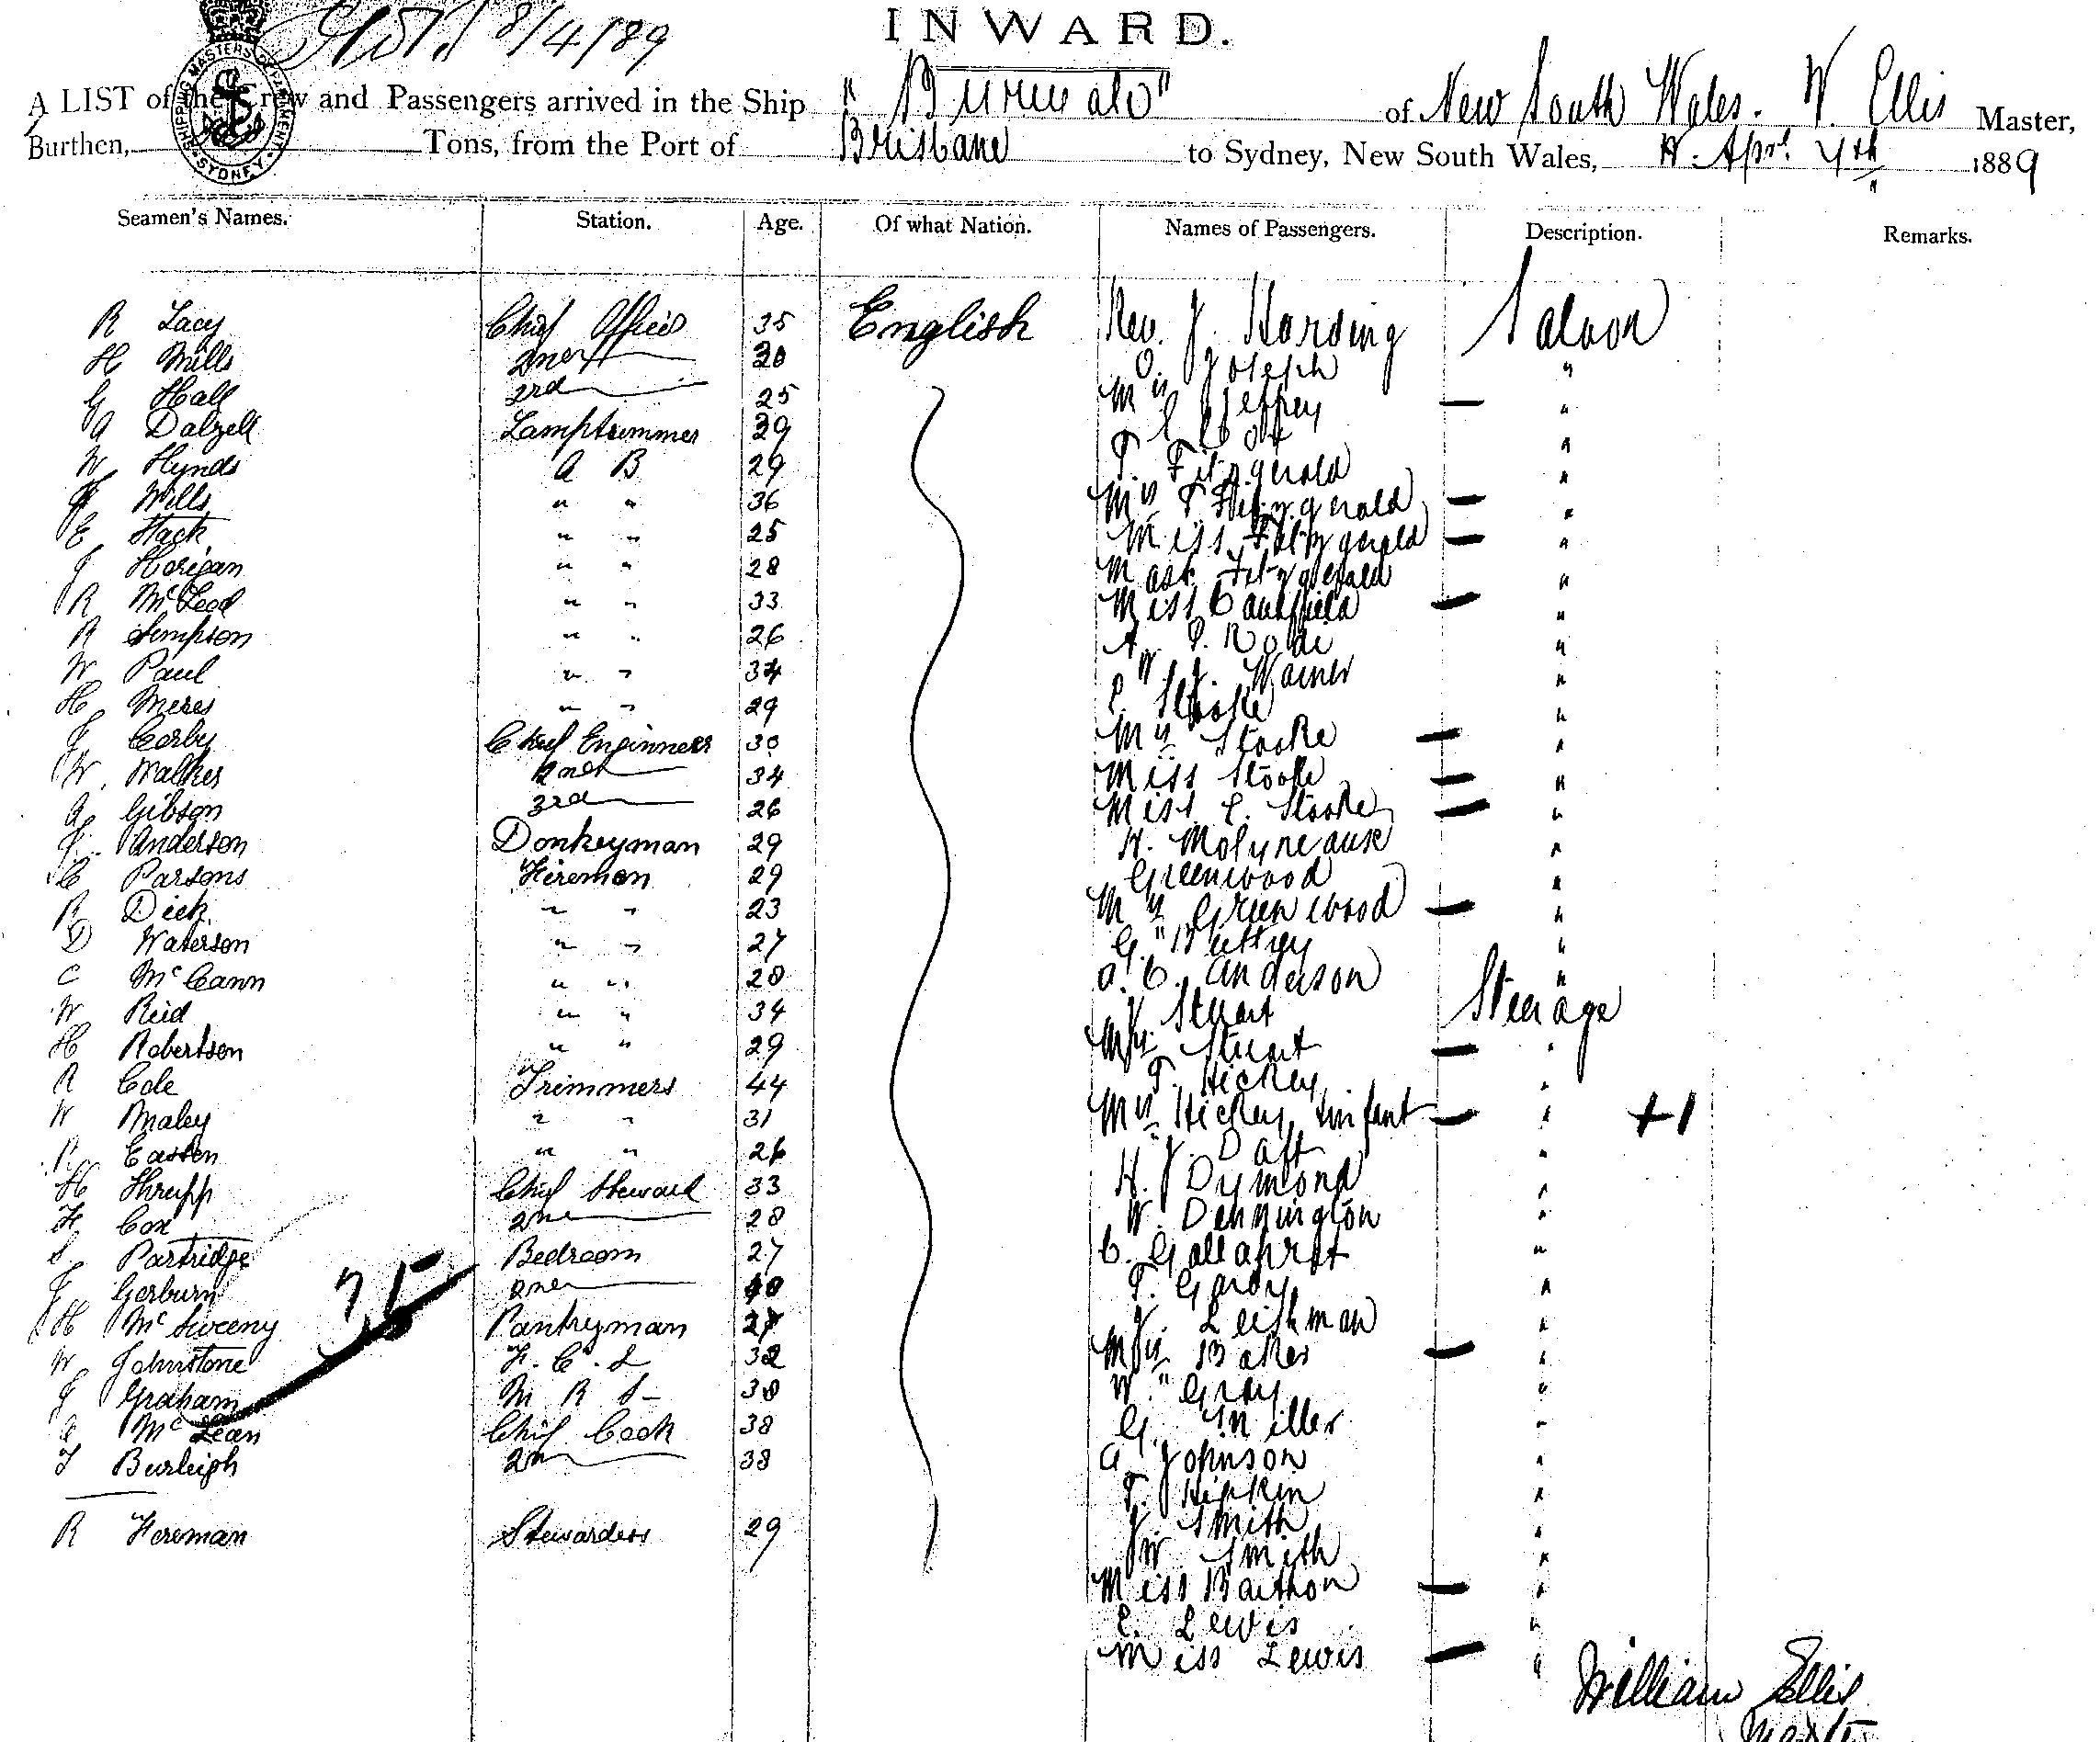 8/4/89
INWARD.
A LIST of the Crew and Passengers arrived in the Ship "Burwah" of New South Wales. W. Ellis Master,
Burthen, Tons, from the Port of Brisbane to Sydney, New South Wales, Apr. 4th 1889
SHIPPING MASTERS DEPARTMENT SYDNEY
Seamen's Names. Station. Age. Of what Nation. Names of Passengers. Description. Remarks.
R Lacy Chief Officer 35 English Rev. J. Harding Saloon
H Mills 2nd 30 O. Joseph "
G Hall 3rd 25 Mrs Jeffrey — "
A Dalzell Lamptrimmer 39 "
W Hynds A B 29 T. Fitzgerald "
Wills " " 36 Mrs T Fitzgerald — "
E Hack " " 25 Miss Fitzgerald — "
J Horigan " " 28 Mast. Fitzgerald "
R McLeod " " 33 Miss Caulfield — "
R Simpson " " 26 A. P. "
W Paul " " 34 W J. Warner "
H Meres " " 29 Stooke "
J Corby Chief Enginners 30 Mrs Stooke — "
W. Walker 2nd 34 Miss Stooke — "
A Gibson 3rd 26 Miss E. Stooke — "
J. Anderson Donkeyman 29 H. Molyneaux "
C Parsons Firemen 29 Greenwood "
R Dick " " 23 Mrs Greenwood — "
D Waterson " " 27 G. Buttrey "
C McCann " " 28 A. C. Anderson "
W Reid " " 34 J. Stuart Steerage
H Robertson " " 29 Mrs Stuart — "
R Cole Trimmers 44 T. Hickey "
W Maley " " 31 Mrs Hickey & infant — " +1
R Easten " " 26 J. Daft "
H Thrupp Chief Steward 33 H. J Dymond "
H. Cox 2nd 28 W. Dennington "
S. Partridge Bedroom 27 C. "
J. Gorburn 2nd T. Gardy "
H McSweeny Pantryman 27 J. Leishman "
W Johnstone F. C. S 32 Mrs Baker — "
J Graham M R S 38 W. Gray "
McLean Chief Cook 38 G. Miller "
T Burleigh 2n 38 A Johnson "
T. Hipkin "
J. Smith "
R Foreman Stewardess 29 W Smith "
Miss — "
E. Lewis "
Miss Lewis — "
75
William Ellis
Master